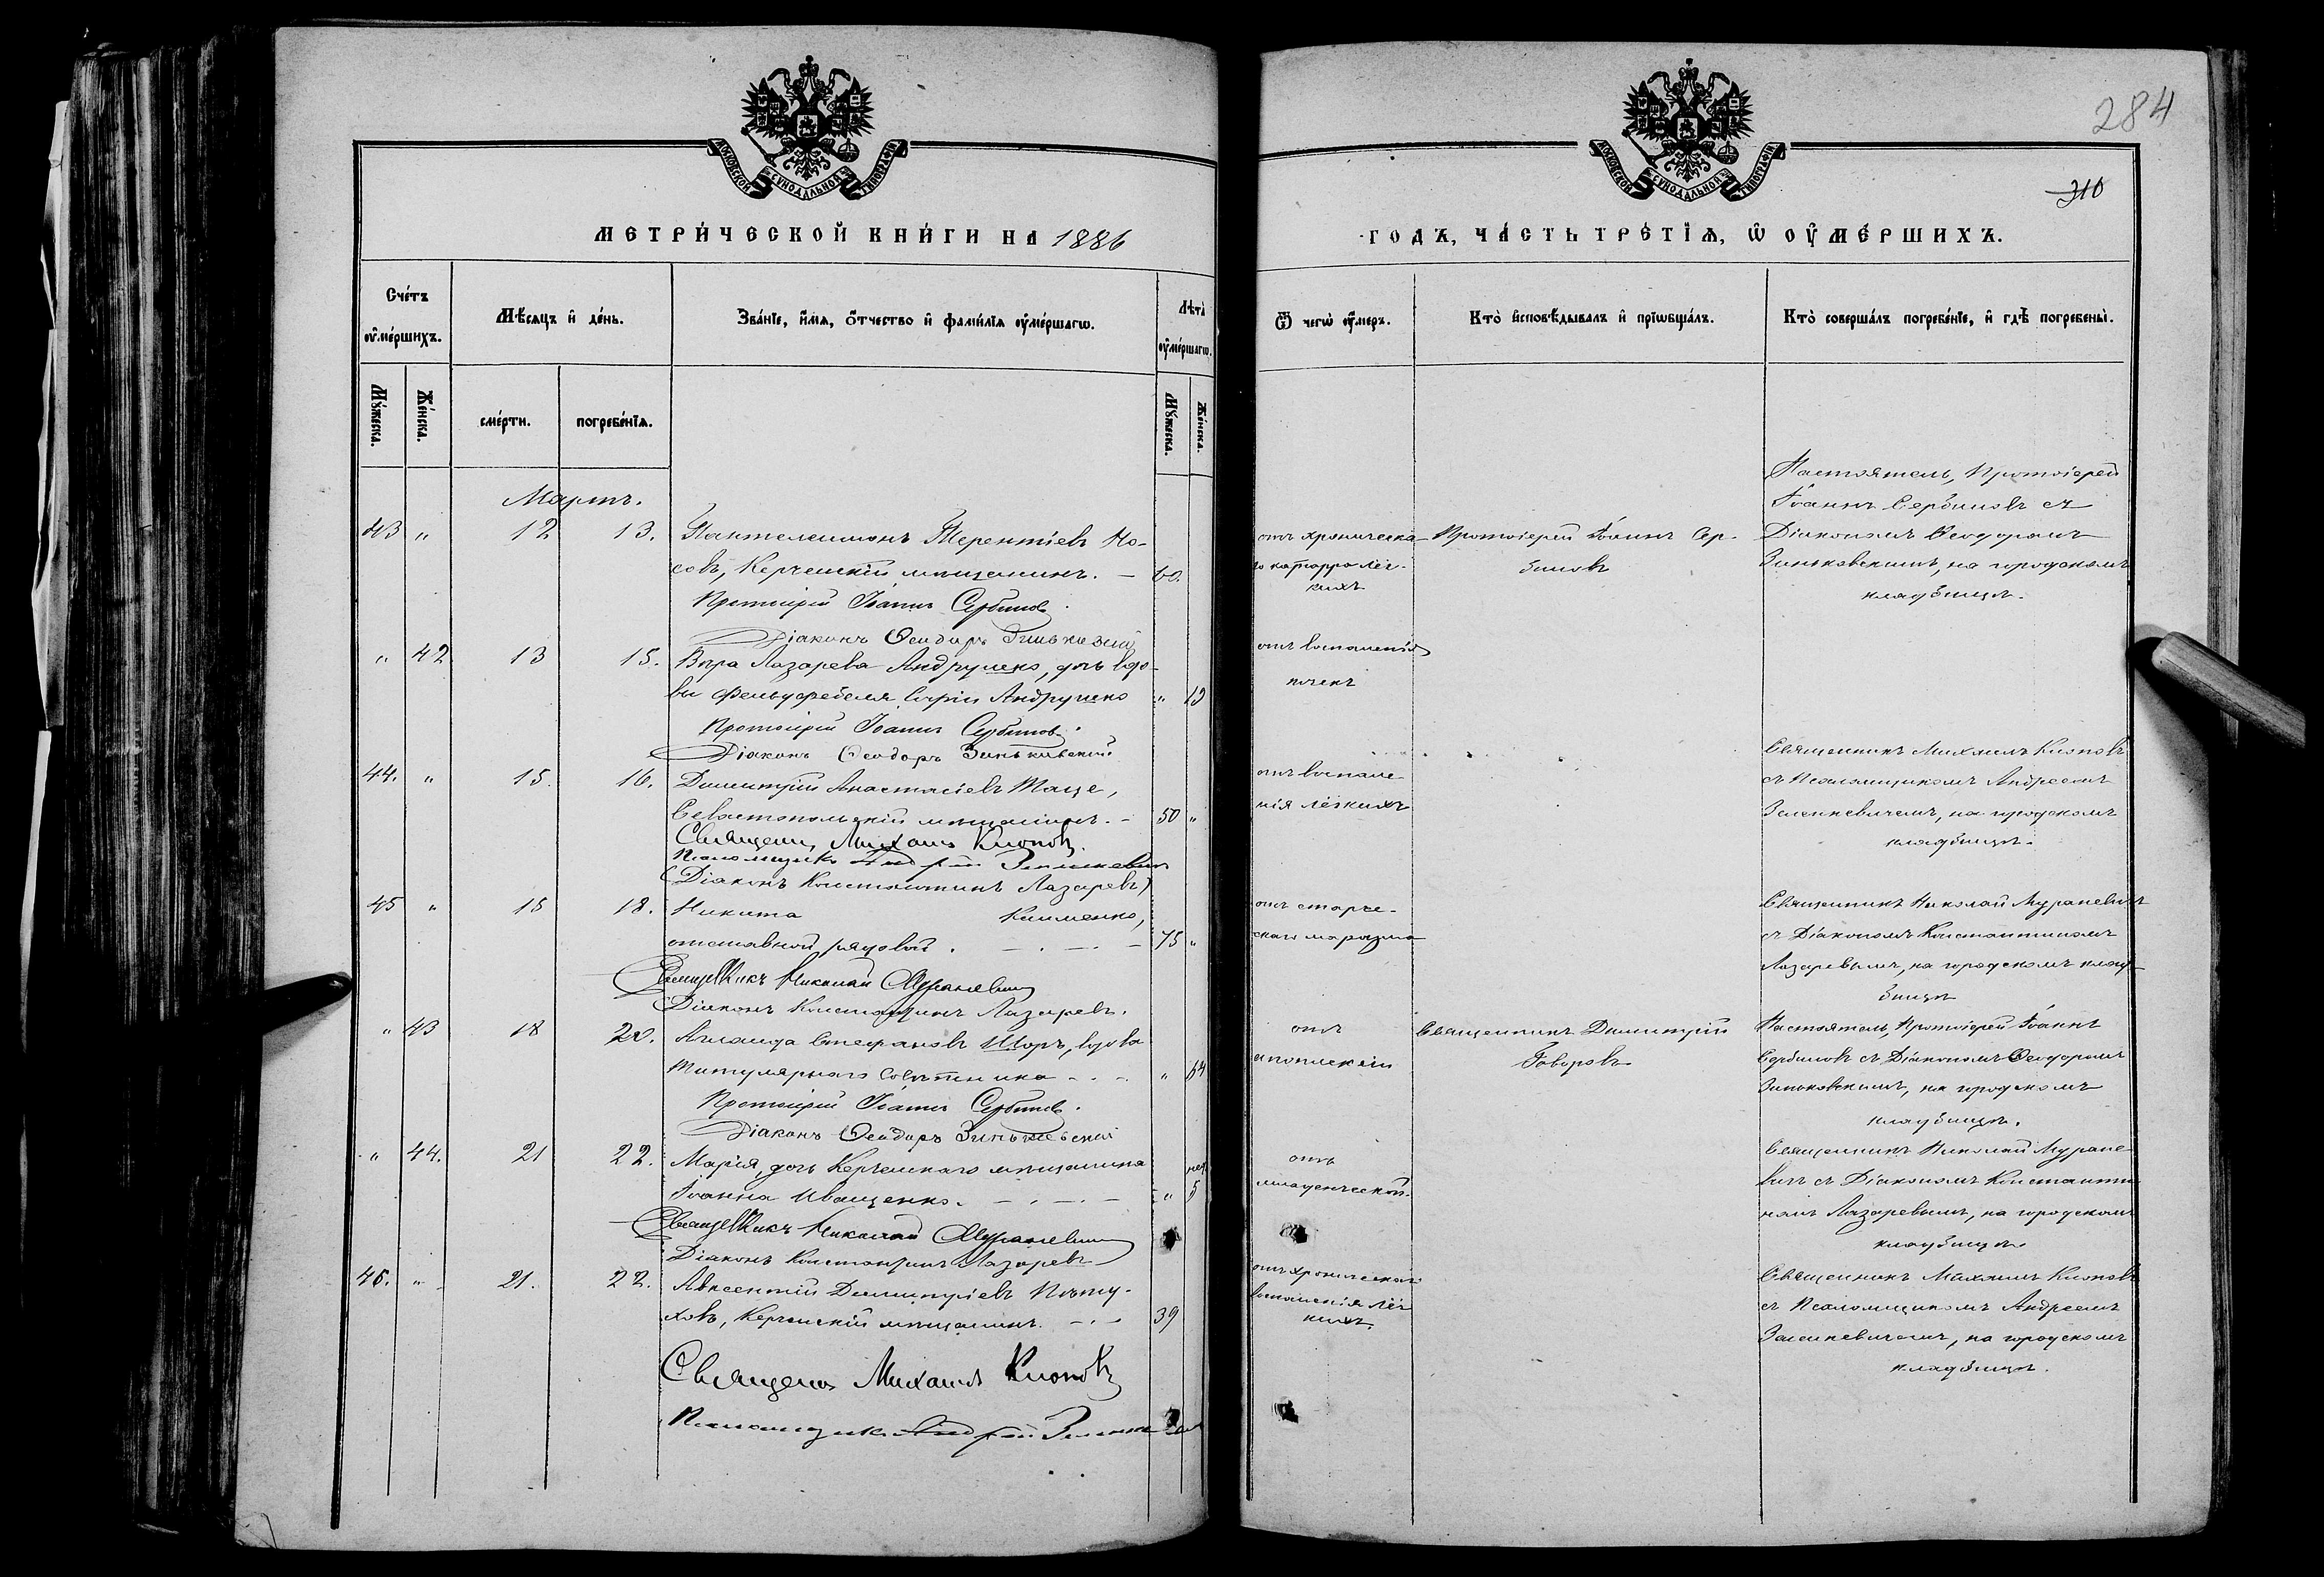 284
310
МОСКОВСКОЙ СѴНОДАЛЬНОЙ ТИПОГРАФІИ
МОСКОВСКОЙ СѴНОДАЛЬНОЙ ТИПОГРАФІИ
МЕТРИ́ЧЕСКОЙ КНИ́ГИ НА 1886
ГОДЪ, ЧА́СТЬ ТРЕ́ТІѦ, Ѡ ОУ҆МЕ́РШИХЪ.
Сче́тъ оу҆ме́ршихъ.
Мѣ́сяцъ и҆ де́нь.
Зва́нїе, и҆́мѧ, ѻ҆́тчество и҆ фами́лїѧ оу҆ме́ршагѡ.
Лѣ́та̀ оу҆ме́ршагѡ.
Ѿ чегѡ̀ оу҆́меръ.
Кто̀ и҆сповѣ́дывалъ и҆ прїѡбща́лъ.
Кто̀ соверша́лъ погребе́нїе, и҆ гдѣ̀ погребены̀.
Мꙋ́жеска.
Же́нска.
сме́рти.
погребе́нїѧ.
Мꙋ́жеска.
Же́нска.
Мартъ.
43 " 12 13. Пантелеимонъ Терентіевъ Но-
совъ, Керченскій мѣщанинъ. — 60.
Протоіерей Іоаннъ Сербиновъ.
Діаконъ Ѳеодоръ Зиньковскій
отъ хроническа-
го катарра лёг-
кихъ
Протоіерей Іоаннъ Сер-
биновъ
Настоятель, Протоіерей
Іоаннъ Сербиновъ съ
Діакономъ Ѳеодоромъ
Зиньковскимъ, на городскомъ
кладбищѣ.
" 42 13 15. Вѣра Лазарева Андрущенко, дочь вдо-
вы фельдфебеля Софіи " 13
Протоіерей Іоаннъ Сербиновъ.
Діаконъ Ѳеодоръ Зиньковскій
отъ воспаленія
почекъ
44. " 15. 16. Димитрій Анастасіевъ
Севастопольскій мѣщанинъ. — 50 "
Священн. Михаилъ Клоповъ.
Псаломщикъ Андрей
(Діаконъ Константинъ Лазаревъ)
отъ воспале-
нія лёгкихъ
Священникъ Михаилъ Клоповъ
съ Псаломщикомъ Андреемъ
на городскомъ
кладбищѣ.
45 " 15 18. Никита Клименко,
отставной рядовой. — . — . — 75 "
Священникъ Николай Мураневичъ
Діаконъ Константинъ Лазаревъ.
отъ старче-
скаго маразма
Священникъ Николай Мураневичъ
съ Діакономъ Константиномъ
Лазаревымъ, на городскомъ клад-
бищѣ
" 43 18 20. Стефановъ вдова
Титулярнаго Совѣтника — . — . " 64
Протоіерей Іоаннъ Сербиновъ.
Діаконъ Ѳеодоръ Зиньковскій
отъ
апоплексіи
Священникъ Димитрій
Говоровъ
Настоятель, Протоіерей Іоаннъ
Сербиновъ съ Діакономъ Ѳеодоромъ
Зиньковскимъ, на городскомъ
кладбищѣ.
" 44. 21 22. Марія, дочь Керченскаго мѣщанина нед.
Іоанна Иващенко. — . — . — " 5
Священникъ Николай Мураневичъ
Діаконъ Константинъ Лазаревъ
отъ
младенческой.
Священникъ Николай Муране-
вичъ съ Діакономъ Константи-
номъ Лазаревымъ, на городскомъ
кладбищѣ
46. " 21. 22. Авксентій Димитріевъ Пѣту-
ховъ, Керченскій мѣщанинъ. — . — 39
Священн. Михаилъ Клоповъ
Псаломщикъ Андрей
отъ хроническаго
воспаленія лёг-
кихъ.
Священникъ Михаилъ Клоповъ
съ Псаломщикомъ Андреемъ
на городскомъ
кладбищѣ.